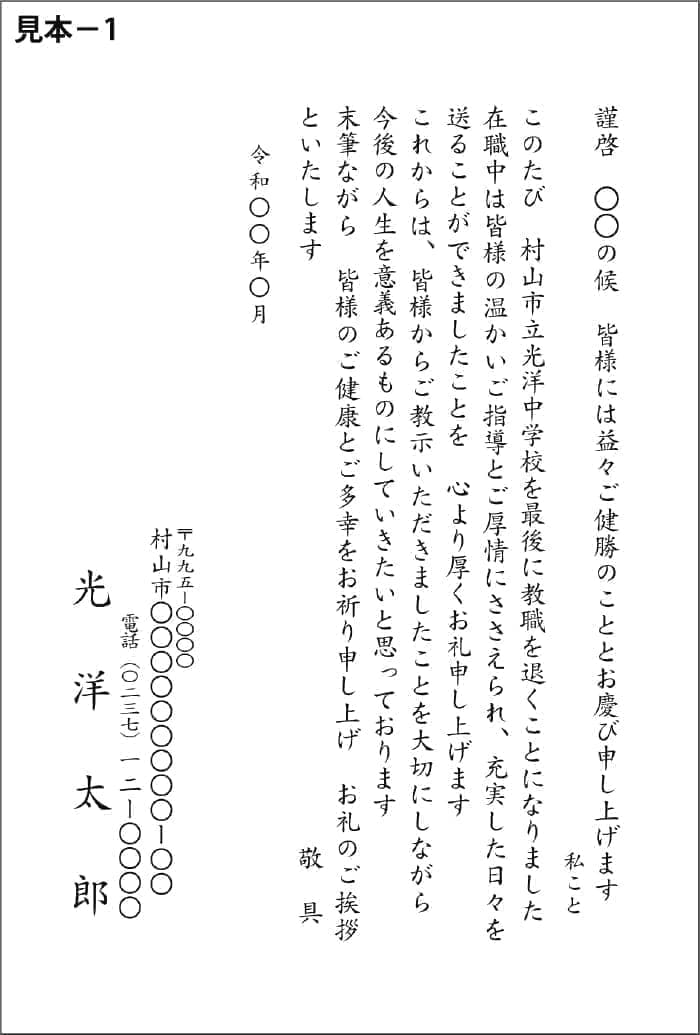 見本－1
謹啓　〇〇の候　皆様には益々ご健勝のこととお慶び申し上げます
私こと
このたび　村山市立光洋中学校を最後に教職を退くことになりました
在職中は皆様の温かいご指導とご厚情にささえられ、充実した日々を
送ることができましたことを　心より厚くお礼申し上げます
これからは、皆様からご教示いただきましたことを大切にしながら
今後の人生を意義あるものにしていきたいと思っております
末筆ながら　皆様のご健康とご多幸をお祈り申し上げ　お礼のご挨拶
といたします
敬具
令和〇〇年〇月
〒九九五ー〇〇〇〇
村山市〇〇〇〇〇〇〇〇〇ー〇〇
電話（〇二三七）一二ー〇〇〇〇
光洋太郎